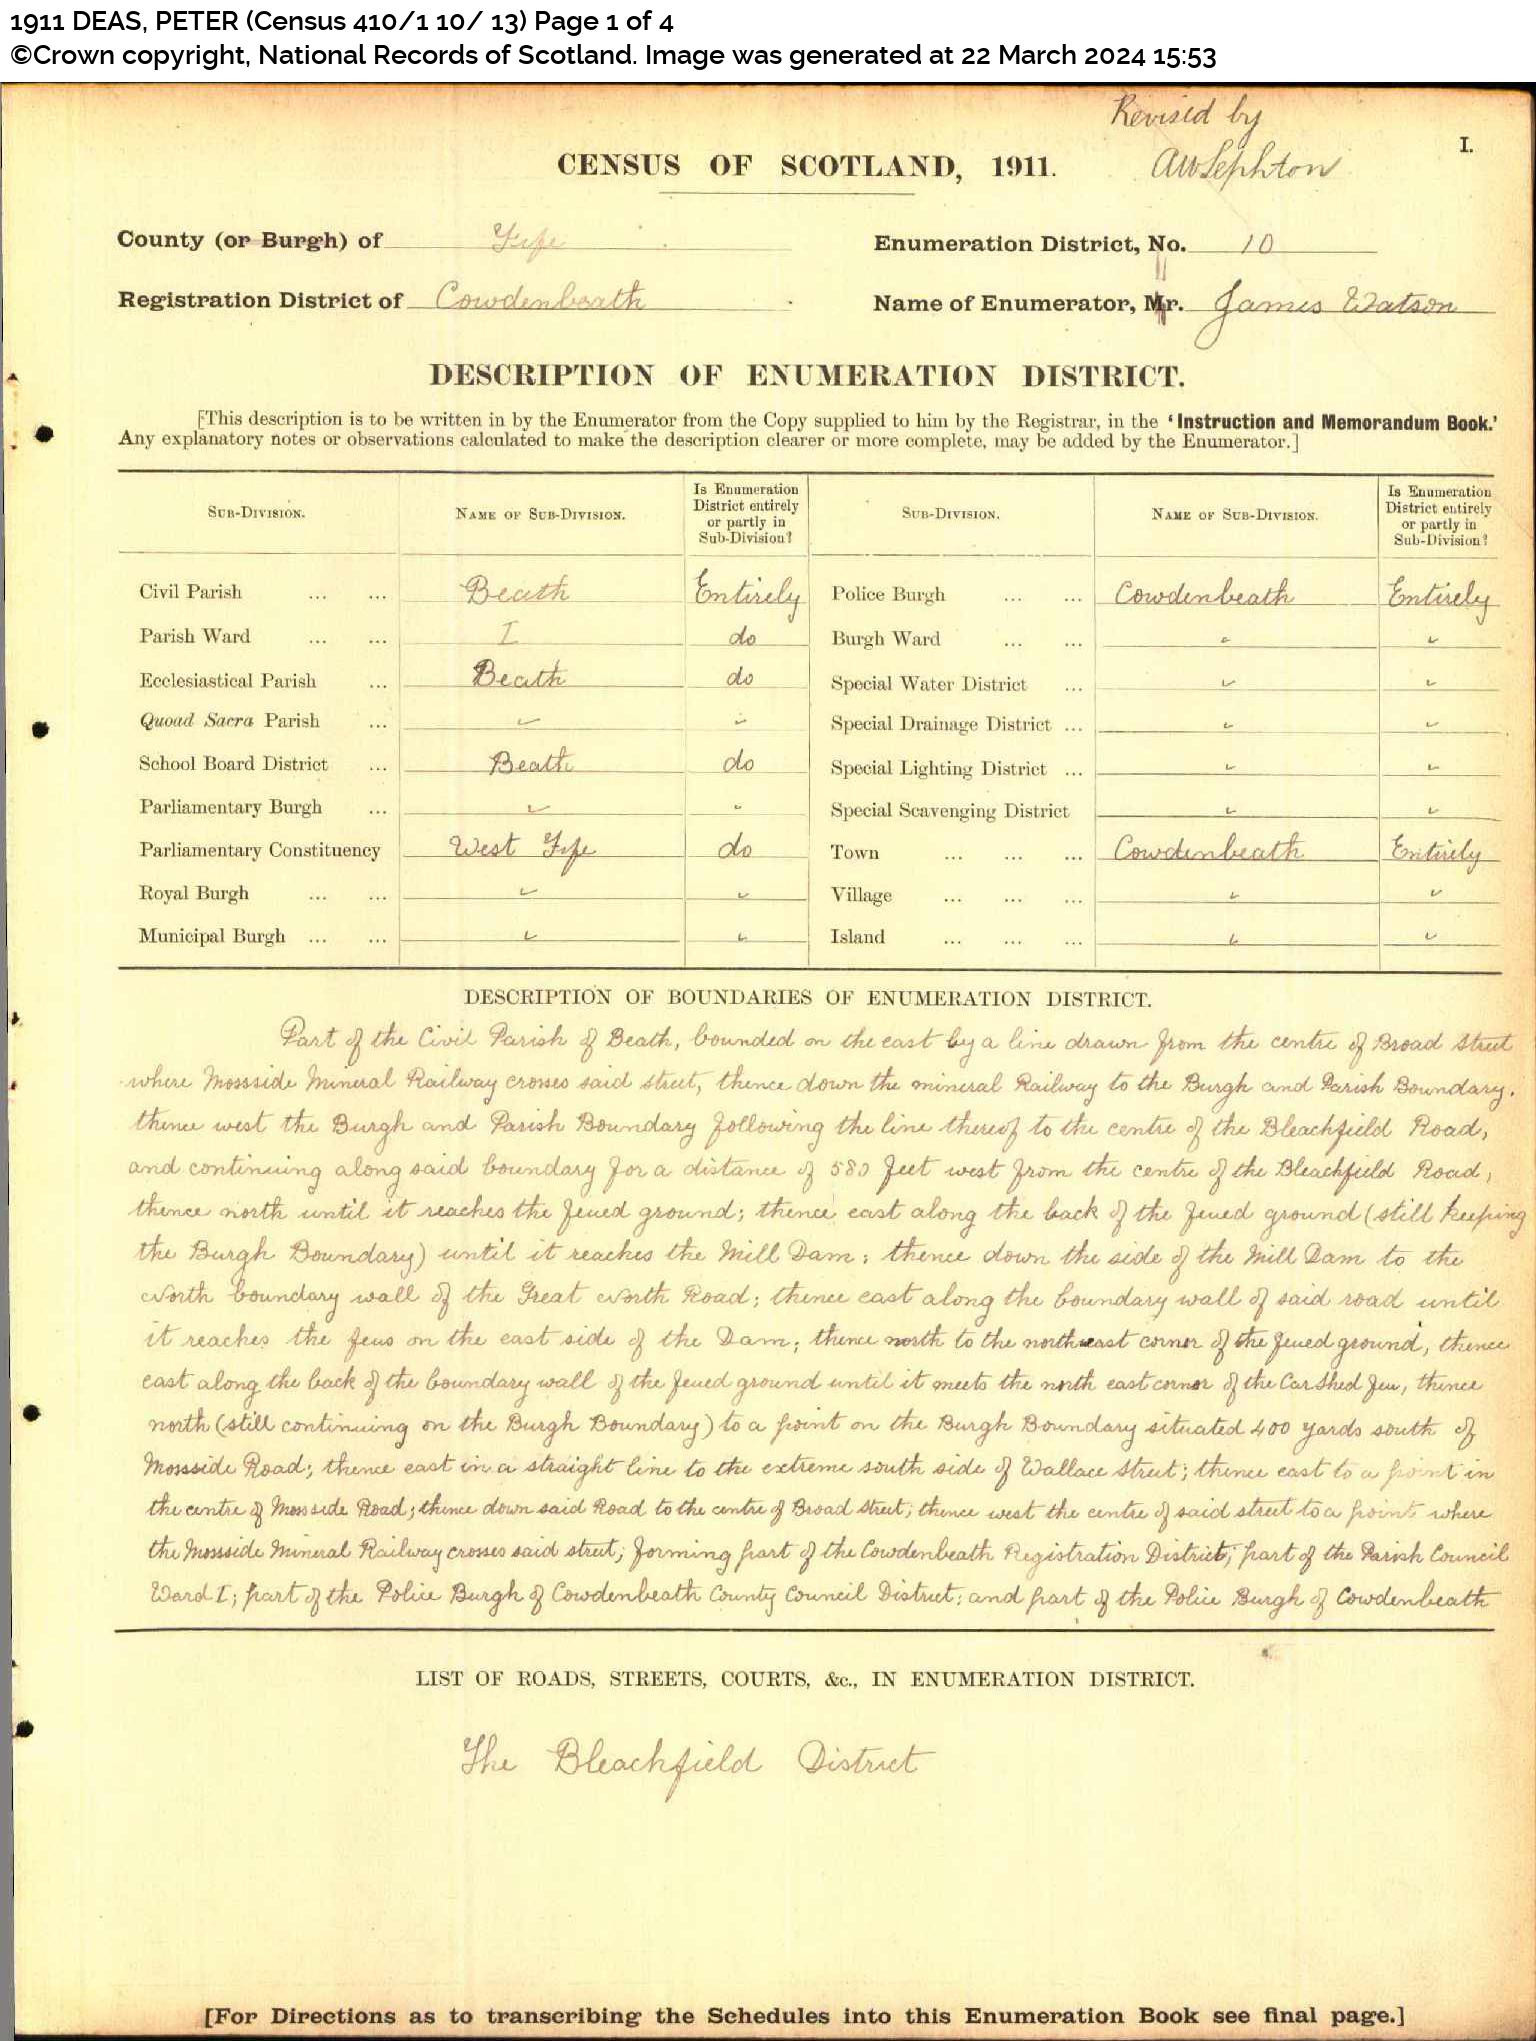 1911 DEAS, PETER (Census 410/1 10/ 13) Page 1 of 4
©Crown copyright, National Records of Scotland. Image was generated at 22 March 2024 15:53
Revised by
AWSephton
I.
CENSUS OF SCOTLAND, 1911.
County (or Burgh) of Fife
Enumeration District, No. 10
Registration District of Cowdenbeath
Name of Enumerator, Mr. James Watson
DESCRIPTION OF ENUMERATION DISTRICT.
[This description is to be written in by the Enumerator from the Copy supplied to him by the Registrar, in the 'Instruction and Memorandum Book.'
Any explanatory notes or observations calculated to make the description clearer or more complete, may be added by the Enumerator.]
SUB-DIVISION. NAME OF SUB-DIVISION. Is Enumeration District entirely or partly in Sub-Division? SUB-DIVISION. NAME OF SUB-DIVISION. Is Enumeration District entirely or partly in Sub-Division?
Civil Parish ... ... Beath Entirely Police Burgh ... ... Cowdenbeath Entirely
Parish Ward ... ... I do Burgh Ward ... ... "  "
Ecclesiastical Parish ... Beath do Special Water District ... " "
Quoad Sacra Parish ... " " Special Drainage District ... " "
School Board District ... Beath do Special Lighting District ... " "
Parliamentary Burgh ... " " Special Scavenging District " "
Parliamentary Constituency West Fife do Town ... ... ... Cowdenbeath Entirely
Royal Burgh ... ... " " Village ... ... ... " "
Municipal Burgh ... ... " " Island ... ... ... " "
DESCRIPTION OF BOUNDARIES OF ENUMERATION DISTRICT.
Part of the Civil Parish of Beath, bounded on the east by a line drawn from the centre of Broad Street
where Mossside Mineral Railway crosses said street, thence down the mineral Railway to the Burgh and Parish Boundary.
thence west the Burgh and Parish Boundary following the line thereof to the centre of the Bleachfield Road,
and continuing along said boundary for a distance of 580 feet west from the centre of the Bleachfield Road,
thence north until it reaches the feued ground; thence east along the back of the feued ground (still keeping
the Burgh Boundary) until it reaches the Mill Dam; thence down the side of the Mill Dam to the
North boundary wall of the Great North Road; thence east along the boundary wall of said road until
it reaches the feus on the east side of the Dam; thence north to the north east corner of the feued ground, thence
east along the back of the boundary wall of the feued ground until it meets the north east corner of the Car Shed feu, thence
north (still continuing on the Burgh Boundary) to a point on the Burgh Boundary situated 400 yards south of
Mossside Road; thence east in a straight line to the extreme south side of Wallace Street; thence east to a point in
the centre of Mossside Road; thence down said Road to the centre of Broad Street; thence west the centre of said street to a point where
the Mossside Mineral Railway crosses said street; forming part of the Cowdenbeath Registration District; part of the Parish Council
Ward I; part of the Police Burgh of Cowdenbeath County Council District; and part of the Police Burgh of Cowdenbeath
LIST OF ROADS, STREETS, COURTS, &c., IN ENUMERATION DISTRICT.
The Bleachfield District
[For Directions as to transcribing the Schedules into this Enumeration Book see final page.]